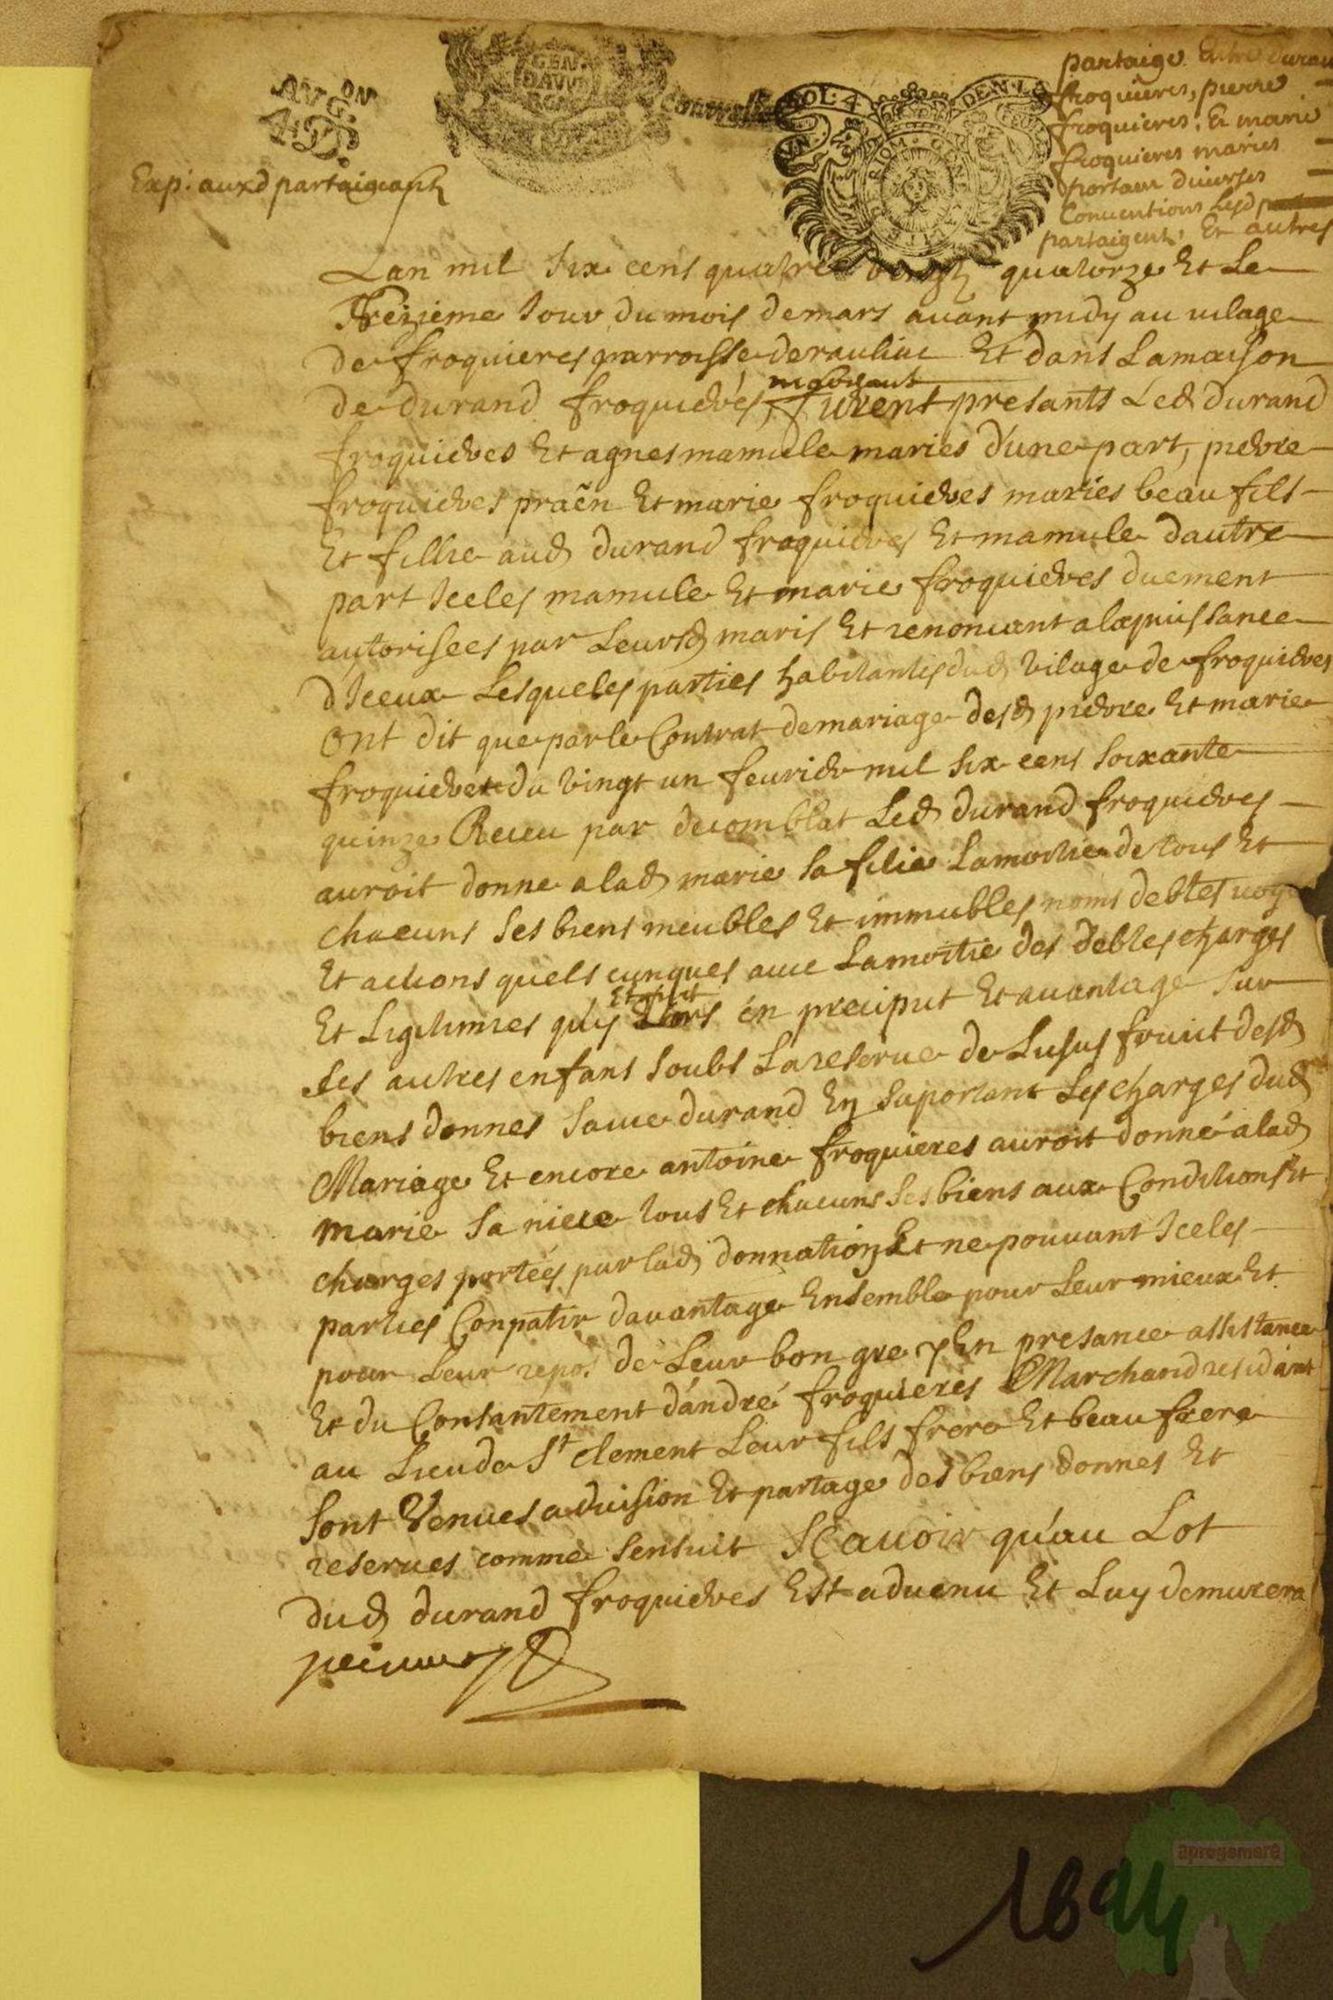 partaige Entre durand
froquieres, pierre
froquieres, Et marie
froquieres maries
portant diverses
Conventions Lesd
partaigents Et autres
AVG. ON
4 D.
GEN.
DAVV
Controlle
SOL. 4 DEN. LA FEVIL
GENE
Exp: auxd partaigeants
Lan mil six cens quatre vingtz quatorze Et Le
Treizieme Jour du mois de mars avant midy au vilage
de froquieres parroisse de rauliac Et dans Lamaison
de durand froquieres, furent presants Led durand
froquieres Et agnes mamule maries d'une part, pierre
froquieres praēn Et marie froquieres maries beau fils
Et fillie aud durand froquieres Et mamule dautre
part Iceles mamule Et marie froquieres duement
autorisees par Leursd maris Et renoncant alapuissance
dIceux Lesqueles parties habitantes dud vilage de froquieres
ont dit que par le Contrat de mariage desd pierre Et marie
froquieres du vingt un feurier mil six cens soixante
quinze Receu par decomblat Led durand froquieres
auroit donne alad marie sa filie Lamoitie de tous Et
chacuns ses biens meubles Et immubles noms debtes
Et actions quels cunques avec Lamoitie des debtes charges
Et Ligitimes quis lors en preciput Et avantage sur
ses autres enfans soubs Lareserve de Lusus fruict desd
biens donnes sa vie durand En suportant Les charges dud
Mariage Et encore antoine froquieres auroit donné alad
marie sa niece tous Et chacuns ses biens aux Conditions Et
charges portées par lad donnation Et ne pouvant Iceles
parties Conpatir davantage Ensemble pour Leur mieux Et
pour Leur repos de Leur bon gre En presance assistance
Et du Consantement d'andré froquieres Marchand residant
au Lieu de St clement Leur fils frere Et beau frere
sont Venues a division Et partage des biens donnes Et
reserves comme sensuit Scavoir qu'au Lot
dud durand froquieres Est advenu Et Luy demurera
1694
apregemere